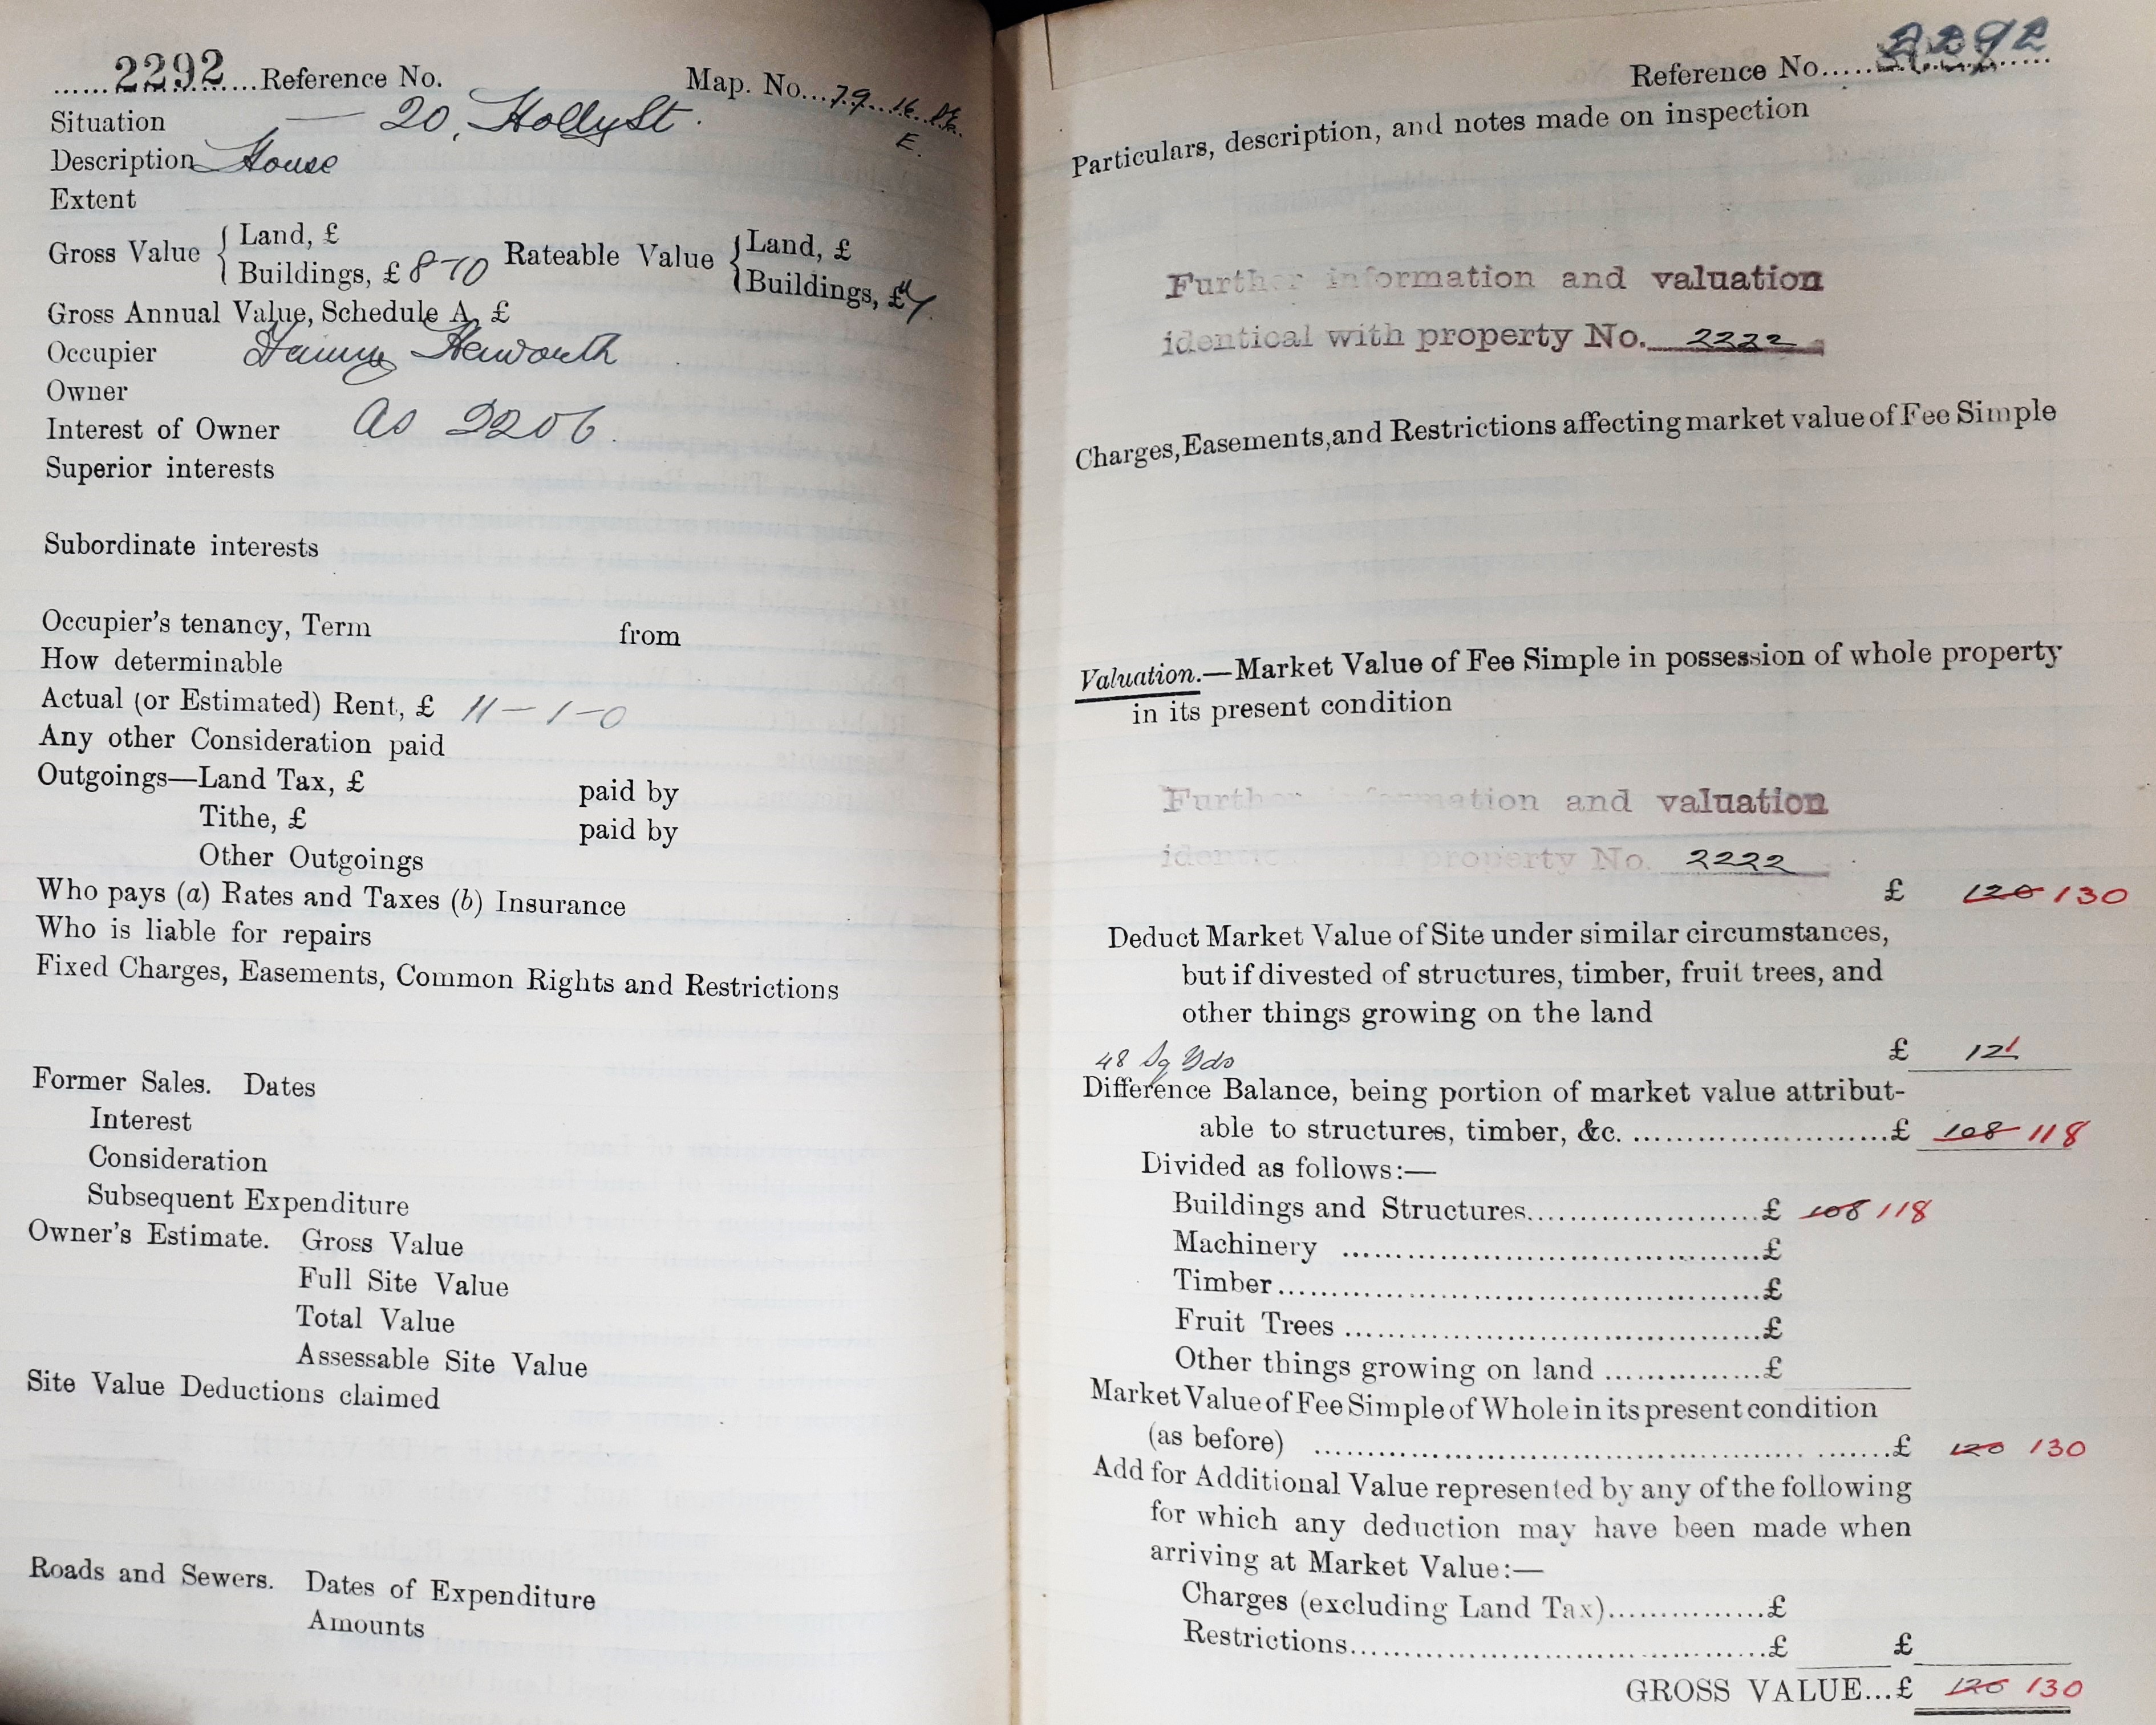 ......2292......Reference No. Map. No...79...16...
E.
Situation — 20, Holly St.
Description House
Extent
Gross Value { Land, £
Buildings, £ 8-10
Rateable Value { Land, £
Buildings, £
Gross Annual Value, Schedule A, £
Occupier Haworth
Owner
Interest of Owner as 2206.
Superior interests
Subordinate interests
Occupier's tenancy, Term from
How determinable
Actual (or Estimated) Rent, £ 11-1-0
Any other Consideration paid
Outgoings—Land Tax, £ paid by
Tithe, £ paid by
Other Outgoings
Who pays (a) Rates and Taxes (b) Insurance
Who is liable for repairs
Fixed Charges, Easements, Common Rights and Restrictions
Former Sales. Dates
Interest
Consideration
Subsequent Expenditure
Owner's Estimate. Gross Value
Full Site Value
Total Value
Assessable Site Value
Site Value Deductions claimed
Roads and Sewers. Dates of Expenditure
Amounts
Reference No. 2292
Particulars, description, and notes made on inspection
Further information and valuation
identical with property No. 2222
Charges, Easements, and Restrictions affecting market value of Fee Simple
Valuation.—Market Value of Fee Simple in possession of whole property
in its present condition
Further information and valuation
identic property No. 2222
£ 120 130
Deduct Market Value of Site under similar circumstances,
but if divested of structures, timber, fruit trees, and
other things growing on the land
48 Sq Yds £ 12
Difference Balance, being portion of market value attribut-
able to structures, timber, &c. ........................£ 108 118
Divided as follows:—
Buildings and Structures........................£ 108 118
Machinery ........................£
Timber........................£
Fruit Trees ........................£
Other things growing on land ...............£
Market Value of Fee Simple of Whole in its present condition
(as before) ........................£ 120 130
Add for Additional Value represented by any of the following
for which any deduction may have been made when
arriving at Market Value:—
Charges (excluding Land Tax)...............£
Restrictions........................£ £
GROSS VALUE...£ 120 130